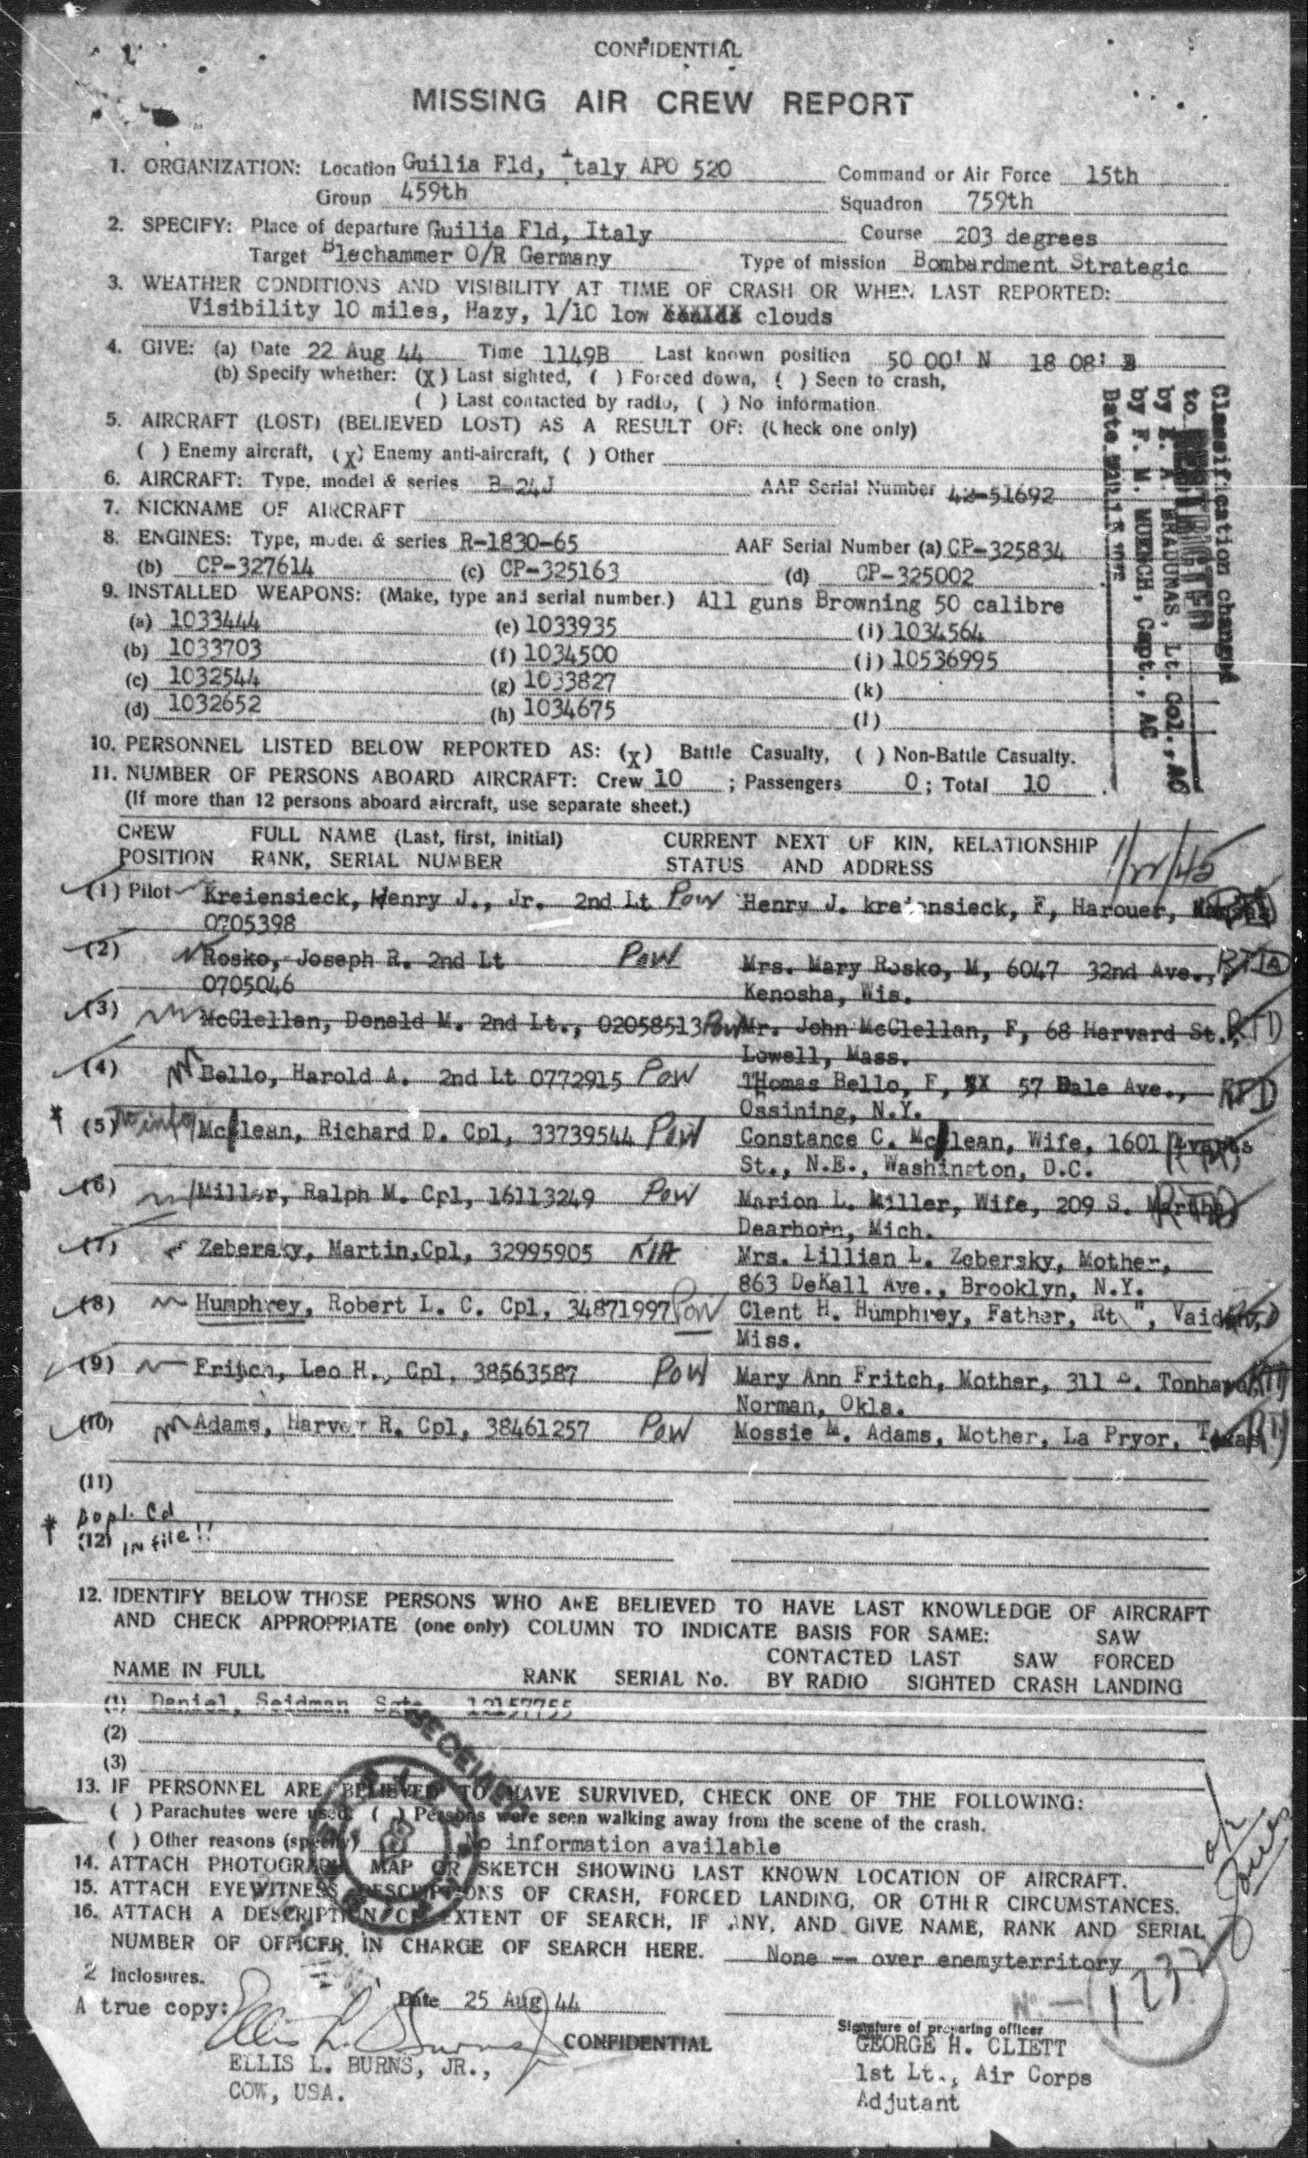 CONFIDENTIAL
MISSING AIR CREW REPORT
1. ORGANIZATION: Location Guilia Fld, Italy APO 520 Command or Air Force 15th
Group 459th Squadron 759th
2. SPECIFY: Place of departure Guilia Fld, Italy Course 203 degrees
Target Blechammer O/R Germany Type of mission Bombardment Strategic
3. WEATHER CONDITIONS AND VISIBILITY AT TIME OF CRASH OR WHEN LAST REPORTED:
Visibility 10 miles, Hazy, 1/10 low clouds
4. GIVE: (a) Date 22 Aug 44 Time 1149B Last known position 50 00' N 18 08' E
(b) Specify whether: (X) Last sighted, ( ) Forced down, ( ) Seen to crash,
( ) Last contacted by radio, ( ) No information
5. AIRCRAFT (LOST) (BELIEVED LOST) AS A RESULT OF: (Check one only)
( ) Enemy aircraft, (X) Enemy anti-aircraft, ( ) Other
6. AIRCRAFT: Type, model & series B-24J AAF Serial Number 42-51692
7. NICKNAME OF AIRCRAFT
8. ENGINES: Type, model & series R-1830-65 AAF Serial Number (a) CP-325834
(b) CP-327614 (c) CP-325163 (d) CP-325002
9. INSTALLED WEAPONS: (Make, type and serial number.) All guns Browning 50 calibre
(a) 1033444 (e) 1033935 (i) 1034564
(b) 1033703 (f) 1034500 (j) 10536995
(c) 1032544 (g) 1033827 (k)
(d) 1032652 (h) 1034675 (l)
Classification changed
to RESTRICTED
by E. A. BRADUNAS, Lt. Col., AC
by F. M. MUENCH, Capt., AC
Date MAR 15
10. PERSONNEL LISTED BELOW REPORTED AS: (X) Battle Casualty, ( ) Non-Battle Casualty.
11. NUMBER OF PERSONS ABOARD AIRCRAFT: Crew 10 ; Passengers 0 ; Total 10
(If more than 12 persons aboard aircraft, use separate sheet.)
CREW FULL NAME (Last, first, initial) CURRENT NEXT OF KIN, RELATIONSHIP
POSITION RANK, SERIAL NUMBER STATUS AND ADDRESS
(1) Pilot Kreiensieck, Henry J., Jr. 2nd Lt POW Henry J. kreiensieck, F, Harouer,
0705398
(2) Rosko, Joseph R. 2nd Lt POW Mrs. Mary Rosko, M, 6047 32nd Ave.,
0705046 Kenosha, Wis.
(3) McClellan, Donald M. 2nd Lt., 02058513 POW Mr. John McClellan, F, 68 Harvard St., RTD
Lowell, Mass.
(4) Bello, Harold A. 2nd Lt 0772915 POW THomas Bello, F, 57 Dale Ave., RTD
Ossining, N.Y.
* (5) No info McClean, Richard D. Cpl, 33739544 POW Constance C. McClean, Wife, 1601
St., N.E., Washington, D.C.
(6) Miller, Ralph M. Cpl, 16113249 POW Marion L. Miller, Wife, 209 S. Martha
Dearborn, Mich.
(7) Zebersky, Martin, Cpl, 32995905 KIA Mrs. Lillian L. Zebersky, Mother,
863 DeKall Ave., Brooklyn, N.Y.
(8) Humphrey, Robert L. C. Cpl, 34871997 POW Clent H. Humphrey, Father, Rt ", Vaiden,
Miss.
(9) Fritch, Leo H., Cpl, 38563587 POW Mary Ann Fritch, Mother, 311
Norman, Okla.
(10) Adams, Harvey R. Cpl, 38461257 POW Mossie M. Adams, Mother, La Pryor, Texas
(11)
* Dopl. Cd
(12) IN file!!
12. IDENTIFY BELOW THOSE PERSONS WHO ARE BELIEVED TO HAVE LAST KNOWLEDGE OF AIRCRAFT
AND CHECK APPROPRIATE (one only) COLUMN TO INDICATE BASIS FOR SAME: SAW
CONTACTED LAST SAW FORCED
NAME IN FULL RANK SERIAL No. BY RADIO SIGHTED CRASH LANDING
(1) Daniel, Seidman Sgt. 12157755
(2)
(3)
RECEIVED
13. IF PERSONNEL ARE BELIEVED TO HAVE SURVIVED, CHECK ONE OF THE FOLLOWING:
( ) Parachutes were used; ( ) Persons were seen walking away from the scene of the crash.
( ) Other reasons (specify) No information available
14. ATTACH PHOTOGRAPH, MAP OR SKETCH SHOWING LAST KNOWN LOCATION OF AIRCRAFT.
15. ATTACH EYEWITNESS DESCRIPTIONS OF CRASH, FORCED LANDING, OR OTHER CIRCUMSTANCES.
16. ATTACH A DESCRIPTION OF EXTENT OF SEARCH, IF ANY, AND GIVE NAME, RANK AND SERIAL
NUMBER OF OFFICER IN CHARGE OF SEARCH HERE. None -- over enemyterritory
2 Inclosures.
A true copy: Date 25 Aug 44
Signature of preparing officer
CONFIDENTIAL GEORGE H. CLIETT
ELLIS L. BURNS, JR., 1st Lt., Air Corps
COW, USA. Adjutant